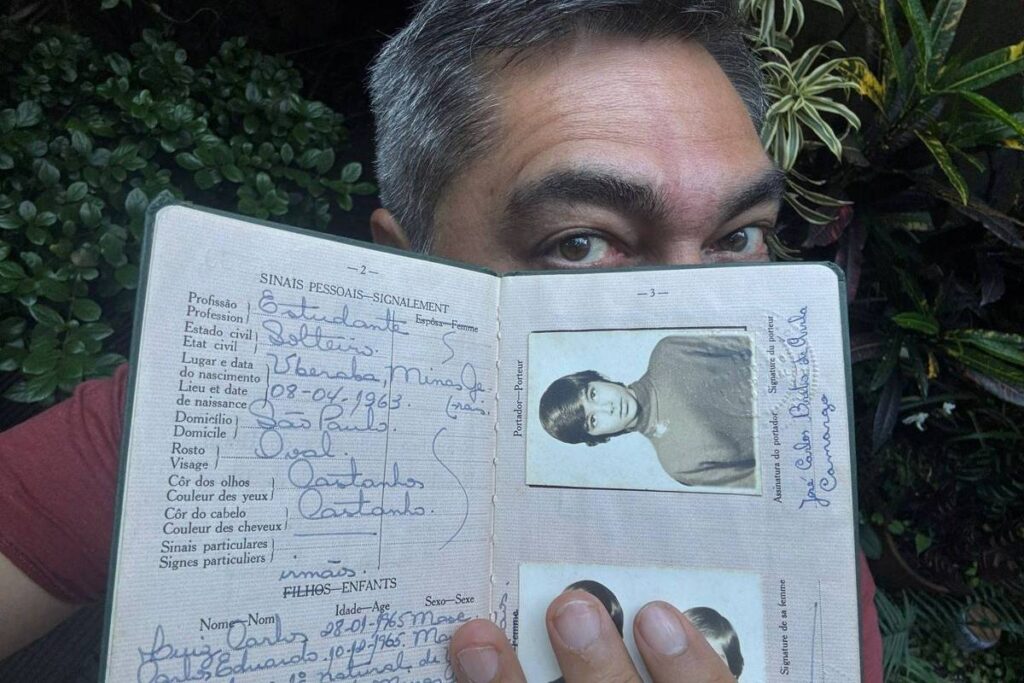 —2—
SINAIS PESSOAIS—SIGNALEMENT
Profissão
Profession
Estudante
Espôsa—Femme
Estado civil
Etat civil
Solteiro.
Lugar e data
do nascimento
Lieu et date
de naissance
Uberaba, Minas Ge-
rais.
08-04-1963.
Domicílio
Domicile
São Paulo.
Rosto
Visage
Oval.
Côr dos olhos
Couleur des yeux
Castanhos
Côr do cabelo
Couleur des cheveux
Castanho.
Sinais particulares
Signes particuliers
irmãos.
FILHOS—ENFANTS
Nome—Nom
Idade—Age
Sexo—Sexe
Luiz Carlos 28-01-1965
Carlos Eduardo. 10-12-1965.
natural de
—3—
Portador—Porteur
Assinatura do portador, Signature du porteur
José Carlos Brito de Ávila
Camargo
Femme
Signature de sa femme